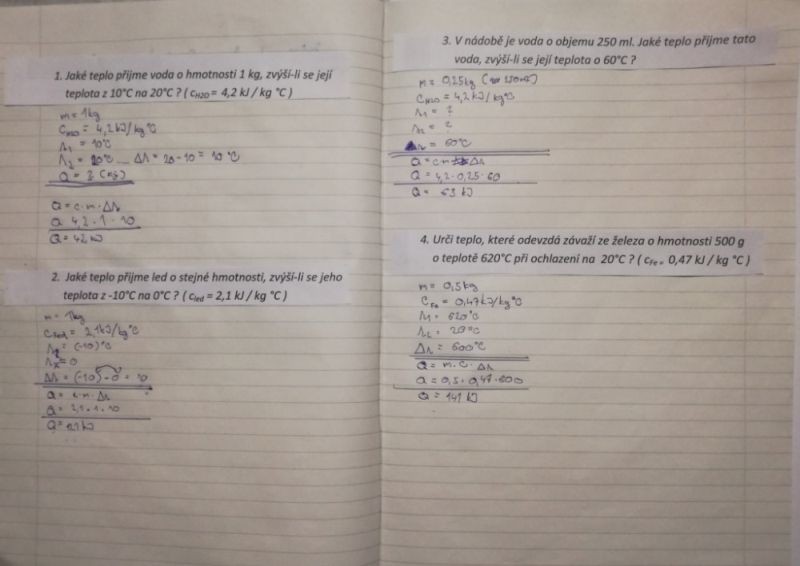 1. Jaké teplo přijme voda o hmotnosti 1 kg, zvýší-li se její
teplota z 10°C na 20°C ? ( cH2O = 4,2 kJ / kg °C )
m = 1kg
CH2O = 4,2 kJ/kg°C
t1 = 10°C
t2 = 20°C ... Δt = 20-10 = 10°C
Q = ? (kJ)
Q = c·m·Δt
Q 4,2 · 1 · 10
Q = 42 kJ
2. Jaké teplo přijme led o stejné hmotnosti, zvýší-li se jeho
teplota z -10°C na 0°C ? ( cled = 2,1 kJ / kg °C )
m = 1kg
Cled = 2,1kJ/kg°C
t1 = (-10)°C
t2 = 0
Δt = (-10) - 0 = 10
Q = c·m·Δt
Q = 2,1 · 1 · 10
Q = 21 kJ
3. V nádobě je voda o objemu 250 ml. Jaké teplo přijme tato
voda, zvýší-li se její teplota o 60°C ?
m = 0,25kg
CH2O = 4,2 kJ/kg°C
t1 = ?
t2 = ?
Δt = 60°C
Q = c·m·Δt
Q = 4,2 · 0,25 · 60
Q = 63 kJ
4. Urči teplo, které odevzdá závaží ze železa o hmotnosti 500 g
o teplotě 620°C při ochlazení na 20°C ? ( cFe = 0,47 kJ / kg °C )
m = 0,5kg
CFe = 0,47kJ/kg°C
t1 = 620°C
t2 = 20°C
Δt = 600°C
Q = m·c·Δt
Q = 0,5 · 0,47 · 600
Q = 141 kJ